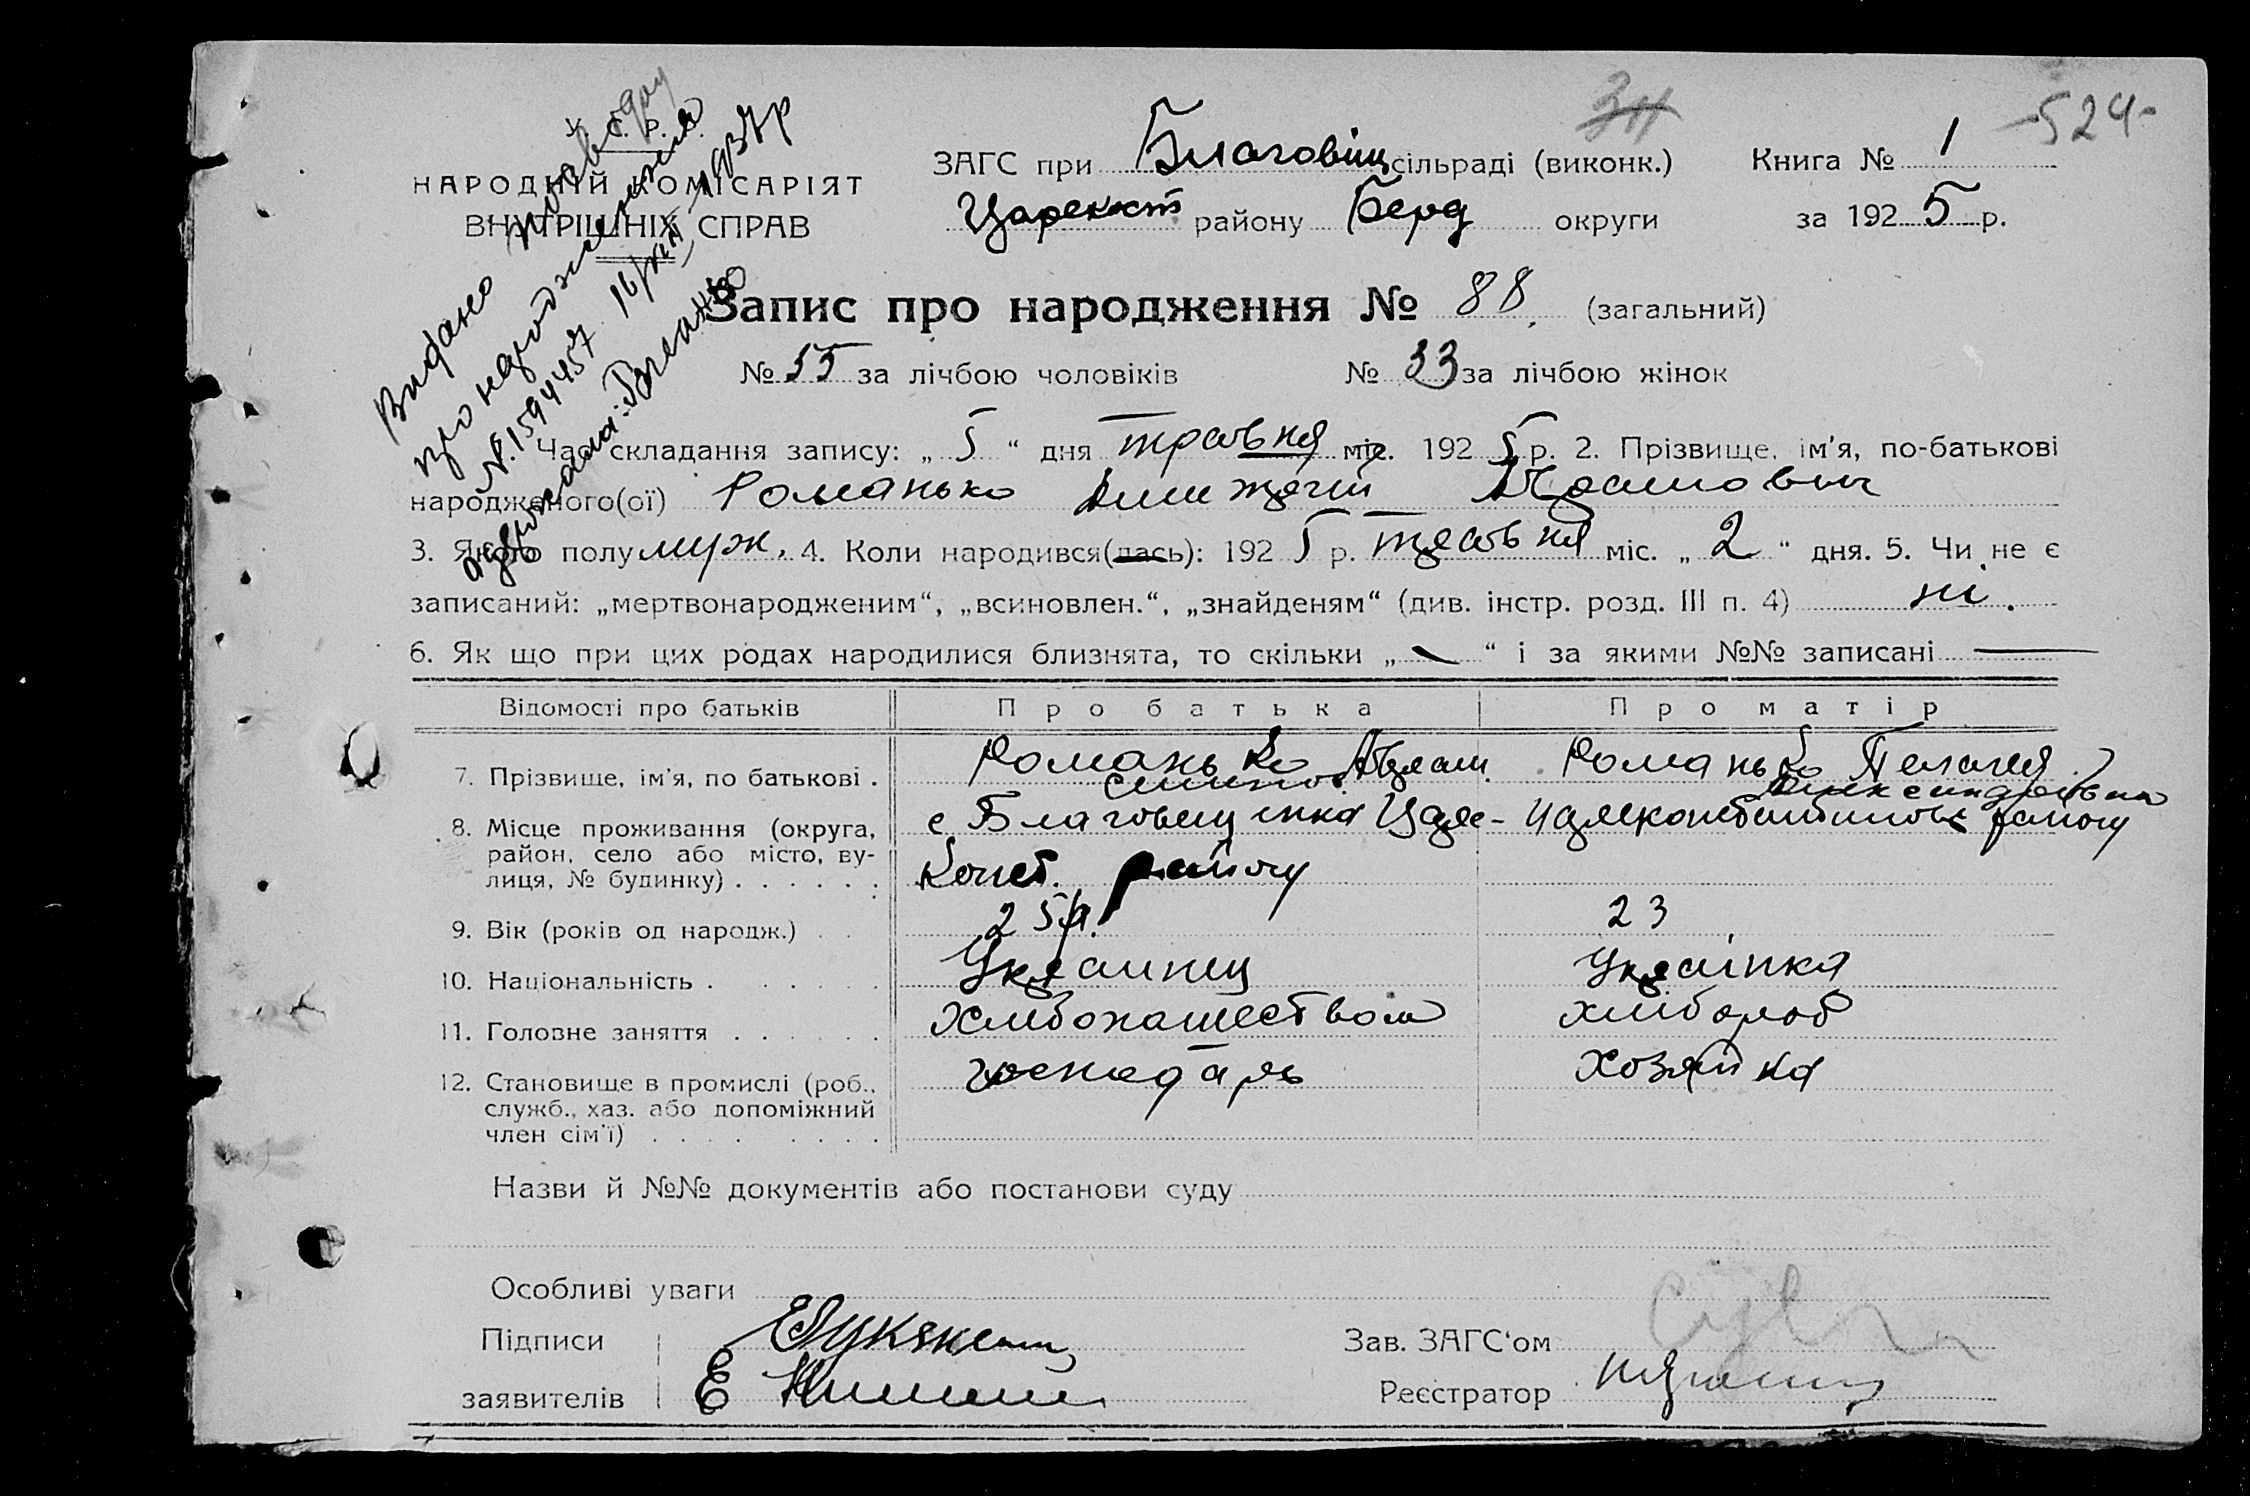 -524-
У. С. Р. Р.
НАРОДНІЙ КОМІСАРІЯТ
ВНУТРІШНІХ СПРАВ
Видано
про народження
№.159 4457 16/
ЗАГС при Благовіщ сільраді (виконк.) Книга № 1
Царекост району Берд округи за 1925 р.
Запис про народження № 88. (загальний)
№ 55 за лічбою чоловіків № 33 за лічбою жінок
Час складання запису: „ 5 “ дня травня міс. 1925 р. 2. Прізвище, ім'я, по-батькові
народженого(ої) Романько
3. Якого полу муж. 4. Коли народився(лась): 1925 р. травня міс. „ 2 “ дня. 5. Чи не є
записаний: „мертвонародженим“, „всиновлен.“, „знайденям“ (див. інстр. розд. III п. 4) ні.
6. Як що при цих родах народилися близнята, то скільки „ — “ і за якими №№ записані —
Відомості про батьків Про батька Про матір
7. Прізвище, ім'я, по батькові . Романько Романько Пелагея
8. Місце проживання (округа, район, село або місто, ву-лиця, № будинку) . . . . . . с Благовещенка Царе-
Конст. району
9. Вік (років од народж.) . . 25 23
10. Національність . . . . . . Украинец Українка
11. Головне заняття . . . . . . Хлибопашеством хлибороб
12. Становище в промислі (роб., служб., хаз. або допоміжний член сім'ї) . . . . . . . . господарь хозяйка
Назви й №№ документів або постанови суду
Особливі уваги
Підписи
заявителів
Зав. ЗАГС'ом
Реєстратор